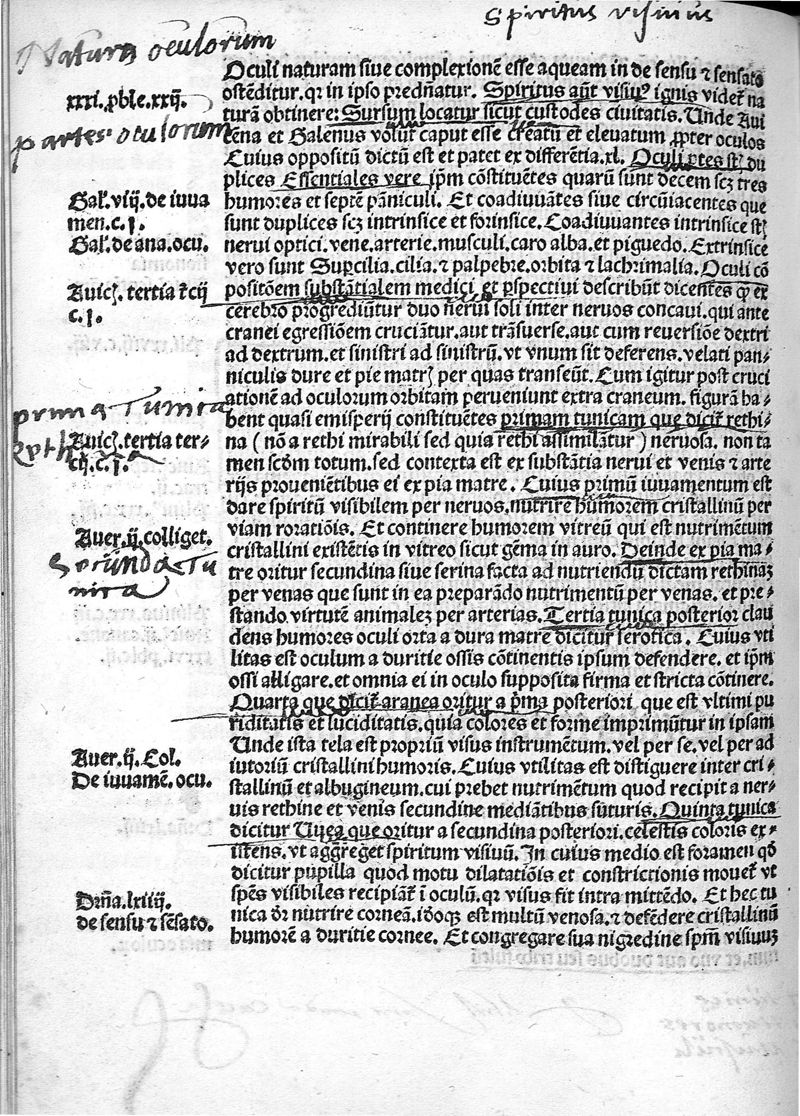 Spiritus visiuus
Natura oculorum
Oculi naturam siue complexionē esse aqueam in de sensu ⁊ sensato
ostēditur. qr in ipso predn̄atur. Spiritus aūt visiuꝰ ignis videt᷑ na
xxxi. ꝓble. xxij.
turā obtinere: Sursum locatur sicut custodes ciuitatis. Unde Aui
partes oculorum
cena et Galenus volūt caput esse creatū et eleuatum ꝓpter oculos
Cuius oppositū dictū est et patet ex differētia. xl. Oculi ꝑtes st᷑ du
plices Essentiales vere ip̄m cōstituētes quarū sunt decem scꝫ tres
Gal. viij. de iuua
men. c. j.
humores et septē pāniculi. Et coadiuuātes siue circūiacentes que
sunt duplices scꝫ intrinsice et forinsice. Coadiuuantes intrinsice st᷑
Gal. de ana. ocu.
nerui optici. vene. arterie. musculi. caro alba. et piguedo. Extrinsice
vero sunt Suꝑcilia. cilia. ⁊ palpebre. orbita ⁊ lachrimalia. Oculi cō
Auicꝫ. tertia t᷑cij
c. j.
positōem substātialem medici, et ꝑspectiui describūt dicentes ꝙ ex
cerebro progrediūtur duo nerui soli inter neruos concaui. qui ante
cranei egressiōem cruciātur. aut trāsuerse. aut cum reuersiōe dextri
ad dextrum. et sinistri ad sinistrū. vt vnum sit deferens. velati pan-
niculis dure et pie matrꝫ per quas transeūt. Cum igitur post cruci
ationē ad oculorum orbitam perueniunt extra craneum. figurā ha-
prima Tunica
bent quasi emisperij constituētes primam tunicam que dicit᷑ rethi-
Auicꝫ. tertia ter-
cij. c. j.
na (nō a rethi mirabili sed quia rethi assimilātur) neruosa. non ta
men scd̄m totum. sed contexta est ex substātia nerui et venis ⁊ arte
rijs proueniētibus ei ex pia matre. Cuius primū iuuamentum est
dare spiritū visibilem per neruos. nutrire humorem cristallinū per
viam roratiōis. Et continere humorem vitreū qui est nutrimētum
Auer. ij. colliget.
cristallini existētis in vitreo sicut gēma in auro. Deinde ex pia ma-
Secunda Tu
nica
tre oritur secundina siue serina facta ad nutriendū dictam rethinaꝫ
per venas que sunt in ea preparādo nutrimentū per venas. et pre-
stando virtutē animaleꝫ per arterias. Tertia tunica posterior clau
dens humores oculi orta a dura matre dicitur serotica. Cuius vti
litas est oculum a duritie ossis cōtinentis ipsum defendere. et ip̄m
ossi alligare. et omnia ei in oculo supposita firma et stricta cōtinere.
Quarta que dicit᷑ aranea oritur a p̄ma posteriori que est vltimi pu
riditatis et luciditatis. quia colores et forme imprimūtur in ipsam
Unde ista tela est propriū visus instrumētum. vel per se. vel per ad
Auer. ij. Col.
De iuuamē. ocu.
iutoriū cristallini humoris. Cuius vtilitas est distiguere inter cri-
stallinū et albugineum. cui prebet nutrimētum quod recipit a ner-
uis rethine et venis secundine mediātibus sūturis. Quinta tunica
dicitur Uuea que oritur a secundina posteriori. celestis coloris ex-
istens. vt aggreget spiritum visiuū. In cuius medio est foramen qd̄
dicitur pupilla quod motu dilatatiōis et constrictionis mouet᷑ vt
Drn̄a. lxiiij.
sp̄es visibiles recipiāt᷑ ī oculū. qr visus fit intra mittēdo. Et hec tu
de sensu ⁊ sēsato.
nica dr̄ nutrire corneā. idoqꝫ est multū venosa. ⁊ defēdere cristallinū
humorē a duritie cornee. Et congregare sua nigredine sp̄m visiuuꝫ